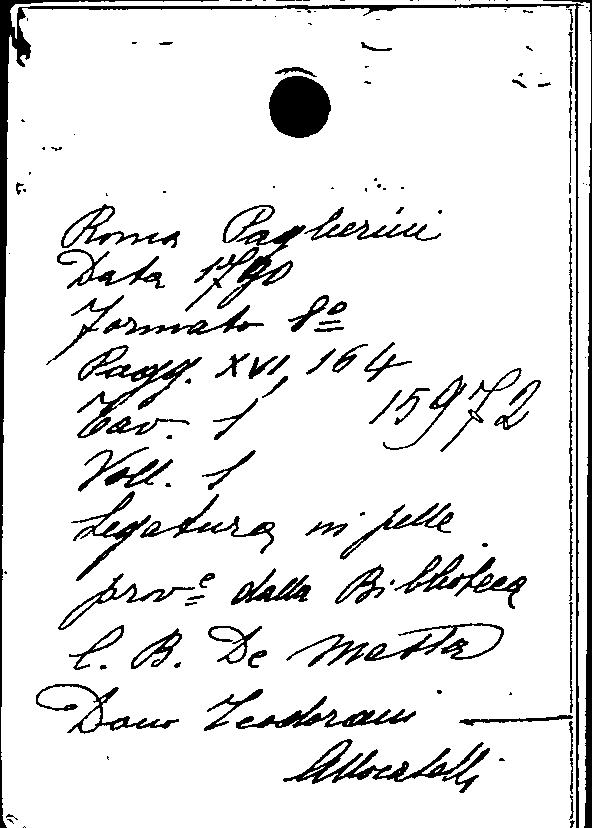 Roma Paglierini
Data 1790
formato 8º
Pagg. XVI, 164
Tav. 1
15972
Voll. 1
Legatura in pelle
prov.e dalla Biblioteca
C. B. De Matta
Dono Teodorani
Allocatelli